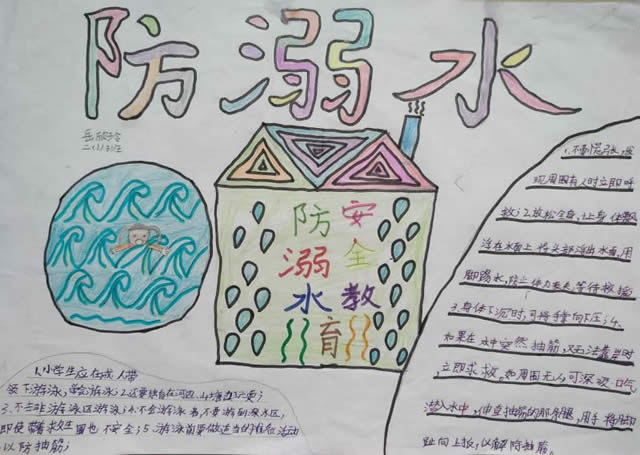 防溺水
岳欣玲
二(八)班
防 安
溺 全
水 教
育
1.不要慌张,发
现周围有人时立即呼
救;2.放松全身,让身体飘
浮在水面上,将头部浮出水面,用
脚踢水,防止体力丧失,等待救援;
3.身体下沉时,可将手掌向下压;4.
如果在水中突然抽筋,又无法靠岸时
立即求救。如周围无人,可深吸一口气
潜入水中,伸直抽筋的那条腿,用手将脚
趾向上扳,以解除抽筋。
1.小学生应在成人带
领下游泳,学会游泳;2.
3.不去非游泳区游泳;4.不会游泳者,不要游到深水区,
即使带着救生圈也不安全;5.游泳前要做适当的准备活动
以防抽筋;